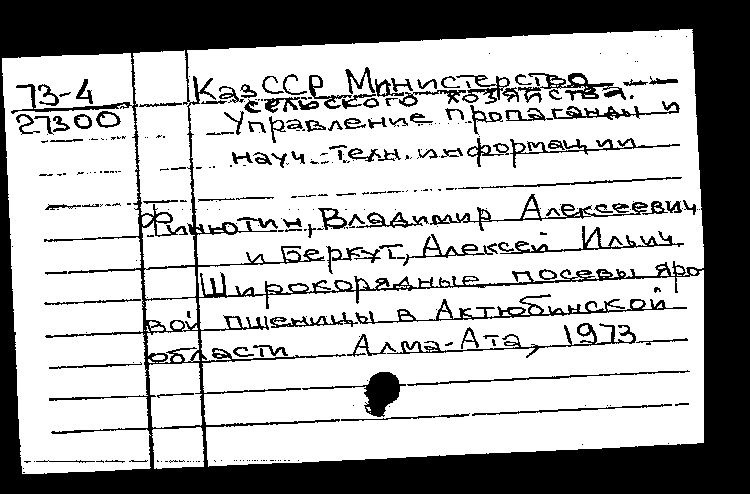 73-4
27300
КазССР Министерство
сельского хозяйства.
Управление пропаганды и
науч.-техн. информации.
Финютин, Владимир Алексеевич
и Беркут, Алексей Ильич.
Широкорядные посевы яро-
вой пшеницы в Актюбинской
области. Алма-Ата, 1973.